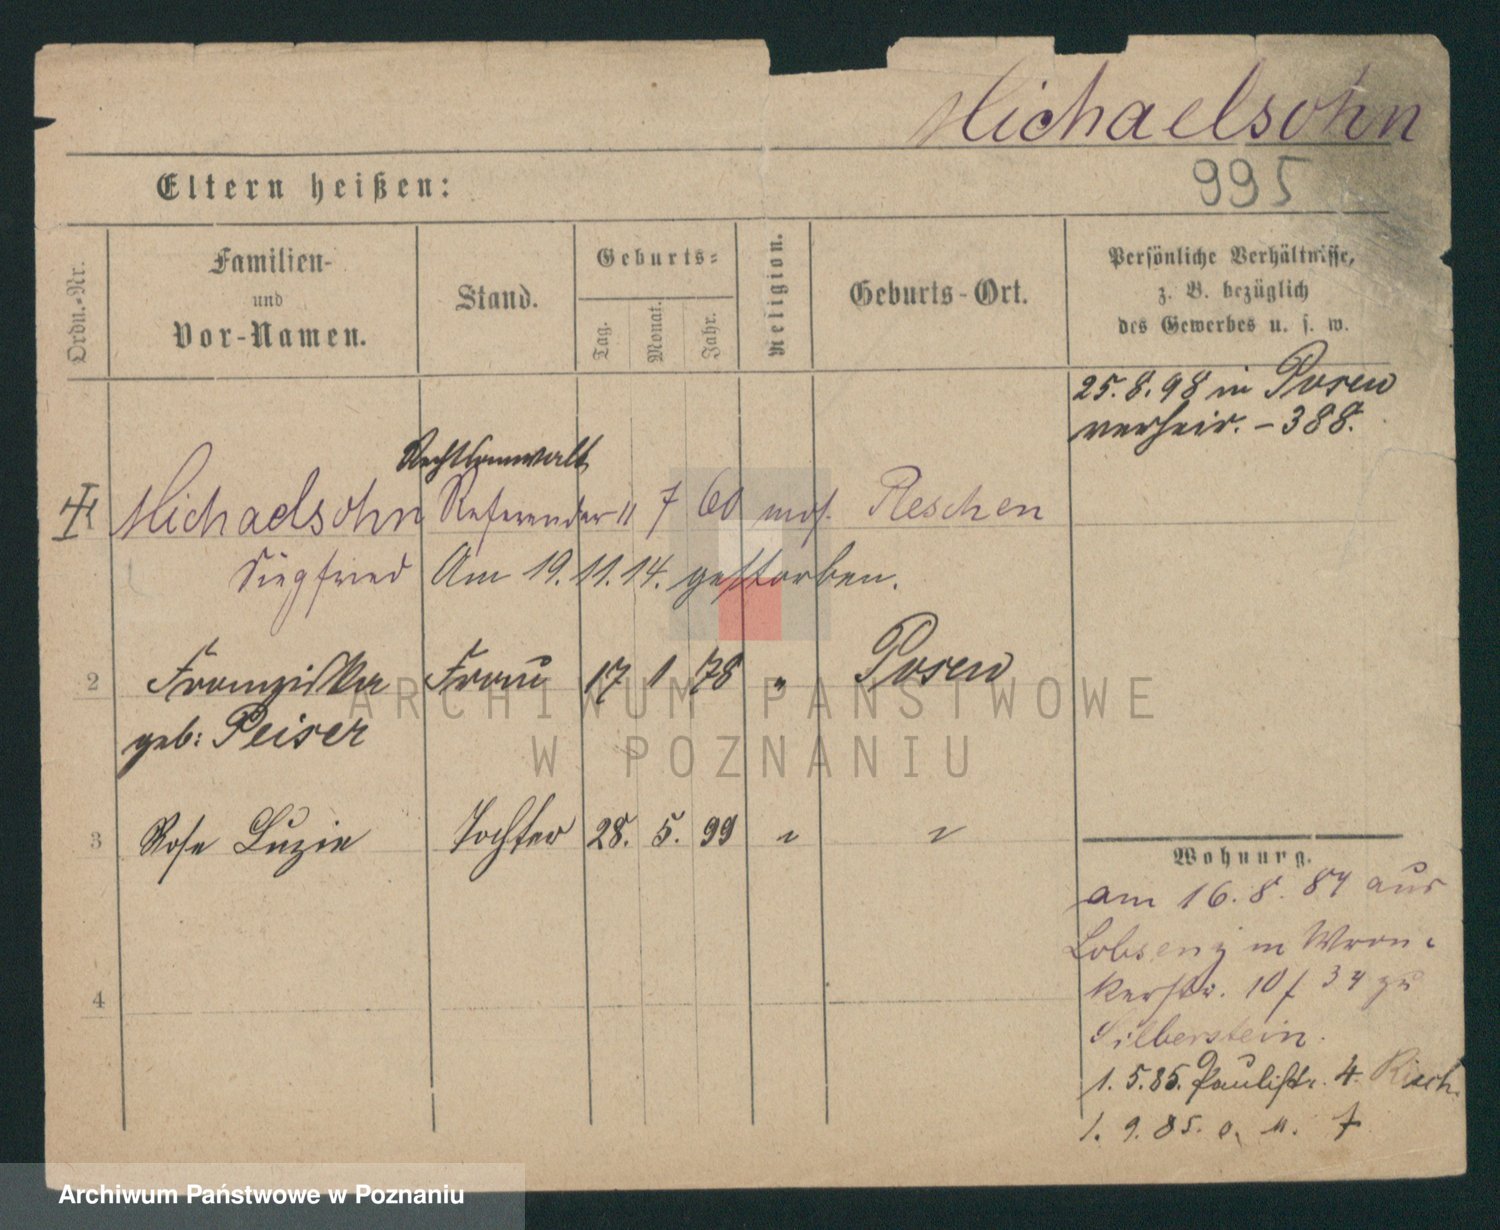 Michaelsohn
995
Eltern heißen:
Ordn.-Nr.
Familien-
und
Vor-Namen.
Stand.
Geburts-
Tag.
Monat.
Jahr.
Religion.
Geburts-Ort.
Persönliche Verhältnisse,
z. B. bezüglich
des Gewerbes u. s. w.
25.8.98 in Posen
verheir. - 388.
Rechtsanwalt
Michaelsohn Referendar 11 7 60 mos. Pleschen
Siegfried Am 19.11.14. gestorben.
2 Franziska Frau 17 1 78 " Posen
geb: Peiser
3 Rose Luzie Tochter 28. 5. 99 " "
4
Wohnung.
am 16.8.84 aus
Lobsenz in Wron-
kerstr. 10 f 34 zu
Silberstein.
1.5.85. Paulistr. 4
1.9.85.
ARCHIWUM PAŃSTWOWE
W POZNANIU
Archiwum Państwowe w Poznaniu